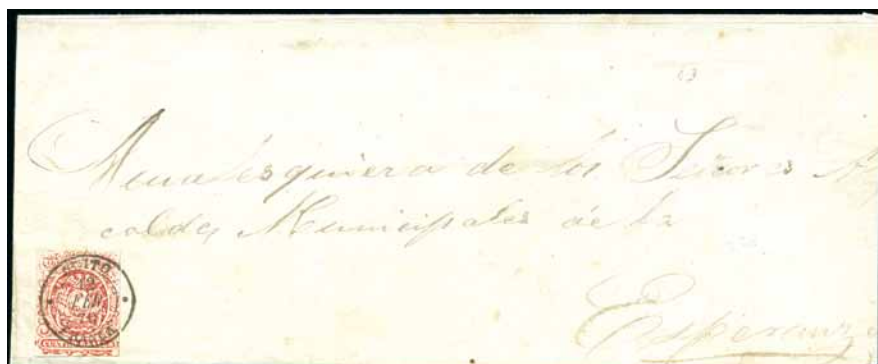 13
A cualesquiera de los Señores Al
caldes Municipales de la
Esperanza
QUITO
12
FEB